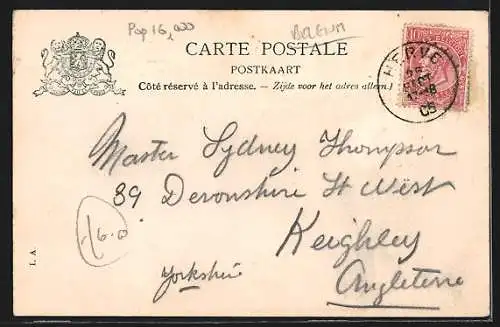 Pop 16,000
CARTE POSTALE
POSTKAART
Côté réservé à l'adresse. – Zijde voor het adres alleen.
10
HERVE
Master Sydney Thompson
39 Devonshire St West
Keighley
Yorkshire
Angleterre
L. A.